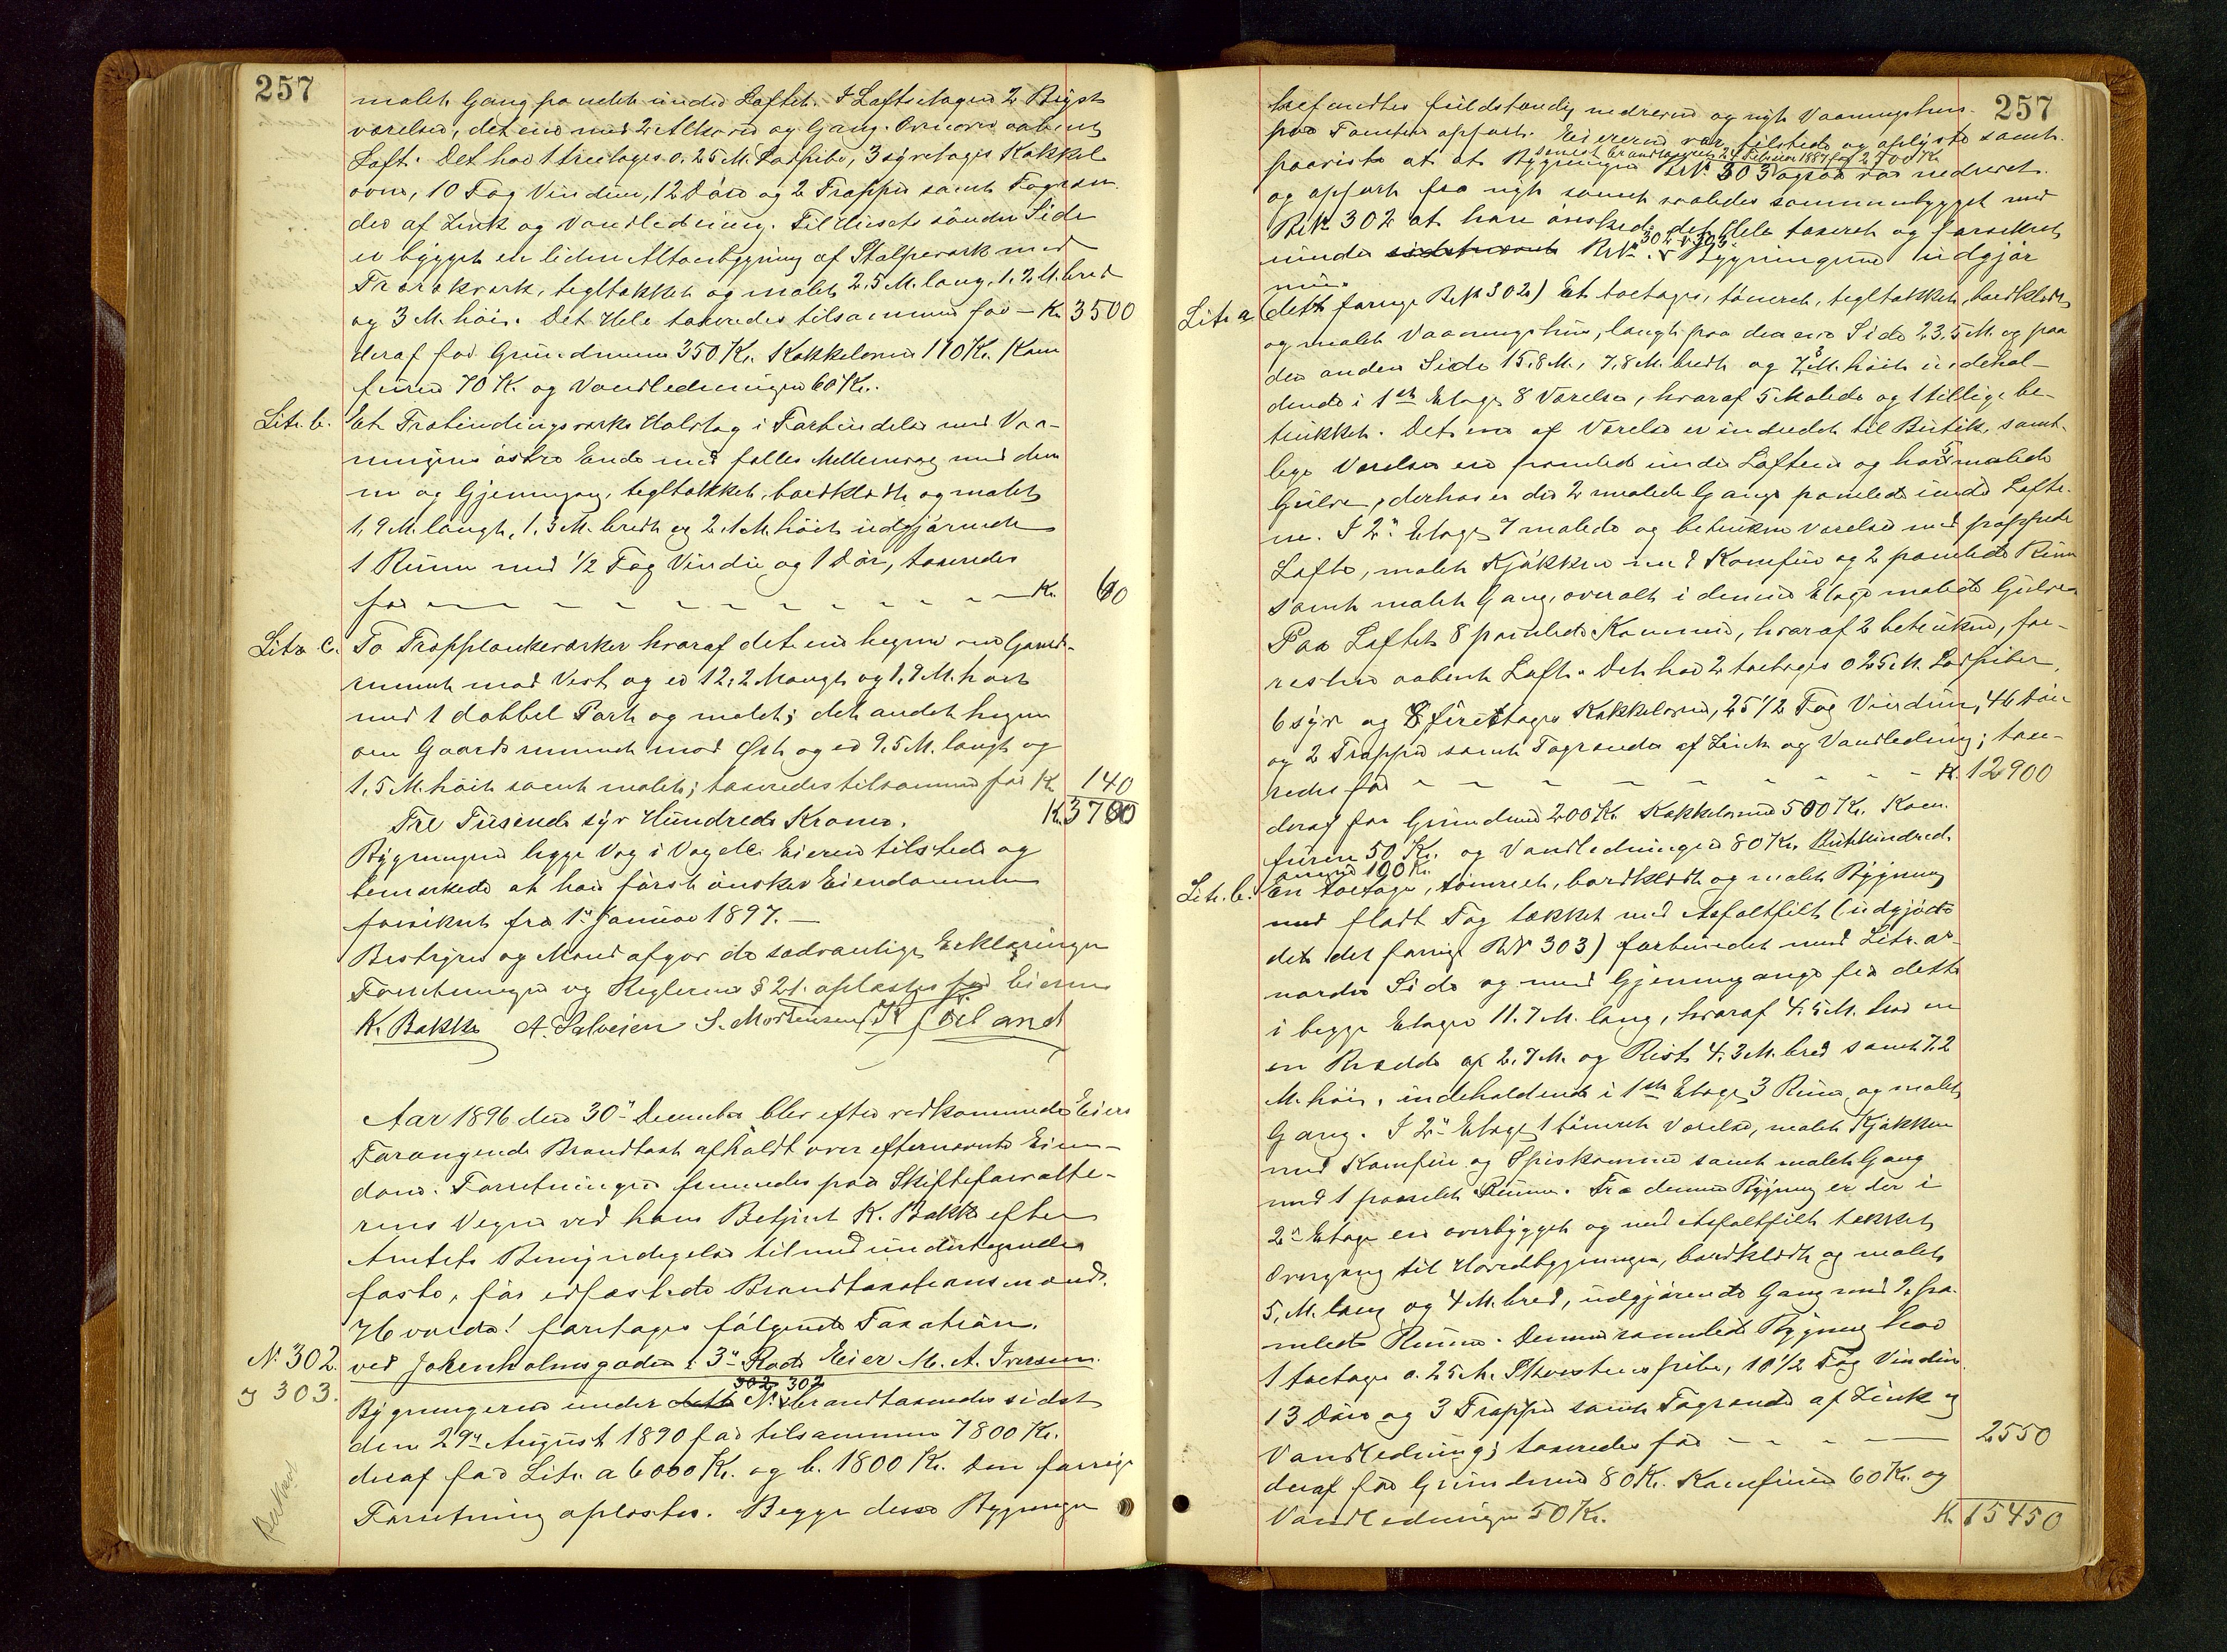 257
malet Gang panelet under Loftet. I Loftsetagen 2 Bryst
værelser, det ene med 2 Alkover og Gang. Ovenover aabent
Loft. Det har 1 treetages 0.25 M. Rørpibe, 3 syvetages Kakkel
ovne, 10 Fag Vinduer, 12 Døre og 2 Trapper samt Tagren-
der af Zink og Vandledning. Til Husets søndre Side
er bygget en liden Altanbygning af Stolpeværk med
Træværk, tegltækket og malet 2,5 M. lang, 1,2 M. bred
og 3 M. høi. Det Hele taxeredes tilsammen for — Kr. 3500
deraf for Grundmuren 350 Kr. Kakkelovne 110 Kr. Kom
furen 70 Kr. og Vandledningen 60 Kr.
Litr. b. Et Træbindingsværks Halvtag i Forbindelse med Vaa-
ningens østre Ende med fælles Mellemvæg med den
ne og Gjennemgang, tegltækket, bordklædt og malet
1,9 M. langt, 1,3 M. bredt og 2,1 M. høit udgjørende
1 Rum med 1/2 Fag Vindu og 1 Dør, taxeredes
for — Kr. 60
Litr. c. To Træplankeværker hvoraf det ene hegner om Gaards-
rummet mod Vest og er 12,2 M langt og 1,9 M. høit
med 1 dobbel Port og malet; det andet hegner
om Gaardsrummet mod Øst og er 9,5 M. langt og
1,5 M. høit samt malet; taxeredes tilsammen for Kr. 140
Tre Tusende syv Hundrede Kroner. Kr. 3700
Bygningen ligge Væg i Væg &c. Eieren tilstede og
bemærkede at han først ønsker Eiendommen
forsikret fra 1ste Januar 1897. —
Bestyrer og Mænd afgav de sædvanlige Erklæringer
Forretningen og Reglerne § 21. oplæstes for Eieren
K. Bakke A. Salvesen S. Mortensen
Aar 1896 den 30te December blev efter vedkommende Eiers
Forlangende Brandtaxt afholdt over efternævnte Eien-
dom. Forretningen fremmedes paa Skifteforvalte-
rens Vegne ved hans Betjent K. Bakke efter
Amtets Bemyndigelse tilmed undertegnede
faste, før edfæstede Brandtaxationsmænd.
Hvorda! foretages følgende Taxation.
N. 302. ved Jokenholmsgaden i 3die Rode Eier M. A. Iversen.
og 303. 302 302
Bygningerne under dette N. brandtaxeredes sidst
den 29de August 1890 for tilsammen 7800 Kr.
deraf for Litr. a 6000 Kr. og b. 1800 Kr. Den forrige
Forretning oplæstes. Begge disse Bygninger
257
befandtes fuldstændig nedrevne og nyt Vaaningshus
paa Tomten opført. Eieren var tilstede og oplyste samt
senest brandtaxeret Februar 1887 for 2700 Kr.
paaviste at Bygningen BrN. 303 ogsaa var nedrevet
og opført fra nyt samt saaledes sammenbygget med
BrN 302 at han ønskede det Hele taxeret og forsikret
302 & 303.
under sidstnævnte BrN. Bygningerne udgjør
nu:
Litr. a (dette forrige BrN 302) Et toetages, tømret, tegltækket, bordklædt
og malet Vaaningshus, langt paa den ene Side 23,5 M. og paa
den anden Side 15,8 M., 7,8 M. bredt og 7, M. høit indehol-
dende i 1ste Etage 8 Værelser, hvoraf 5 Malede og 1 tillige be-
trukket. Det ene af Værelser er indredet til Butik, samt-
lige Værelser ere panelede under Loftene og har malede
Gulve, derhos er der 2 malede Gange panelede under Lofte-
ne. I 2den Etage 7 malede og betrukne Værelser med pappede
Lofte, malet Kjøkken med Komfur og 2 panelede Rum
samt malet Gang, overalt i denne Etage malede Gulve
Paa Loftet 8 panelede Kammere, hvoraf 2 betrukne, for-
resten aabent Loft. Det har 2 toetages 0.25 M. Rørpiber,
6 syv og 8 firetages Kakkelovne, 25 1/2 Fag Vinduer, 46 Døre
og 2 Trapper samt Tagrender af Zink og Vandledning; taxe-
redes for — Kr. 12900
deraf for Grundmur 200 Kr. Kakkelovne 500 Kr. Kom-
furen 50 Kr. og Vandledningen 80 Kr. Butikindred-
ningen 100 Kr.
Litr. b. En toetages, tømret, bordklædt og malet Bygning
med fladt Tag tækket med Asfaltfilt (udgjorde
det forrige BrN 303) forbundet med Litr. a's
nordre Side og med Gjennemgange fra dette
i begge Etager 11.7 M. lang, hvoraf 4.5 M. har en
en Bredde af 2.7 M. og Rest 4.3 M. bred samt 7.2
M. høi, indeholdende i 1ste Etage 3 Rum og malet
Gang. I 2den Etage 1 tømret Værelse, malet Kjøkken
med Komfur og Spiskammer samt malet Gang
med 1 panelet Rum. Fra denne Bygning er der i
2den Etage en overbygget og med Asfaltfilt tækket
Overgang til Hovedbygningen, bordklædt og malet
5, M. lang og 4 M. bred, udgjørende Gang med 2 pa-
nelede Rum. Denne samlede Bygning har
1 toetages 0.25 M. Skorstenspibe, 10 1/2 Fag Vinduer
13 Døre og 3 Trapper samt Tagrender af Zink og
Vandledning; taxeredes for — 2550
deraf for Grundmur 80 Kr. Komfuren 60 Kr. og
Vandledningen 50 Kr. Kr. 15450